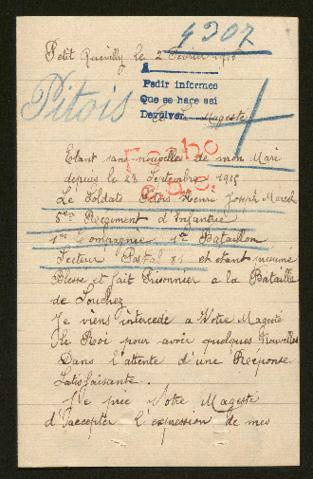 4307
Petit Quevilly le 2 Fevrier 1916
A
Pedir informes
Que se hace asi
Devolver
Pitois
Majesté
Fecho
Etant sans nouvelles de mon Mari
depuis le 28 Septembre 1915
Le Soldats Pitois Henri Joseph Marcel
5em Regiment d'Infanterie
1re Compagnie 1er Bataillon
Secteur Postal 81 et etant presume
Blesse et fait Prisonnier a la Bataille
de Souchez
Je viens intercede a Votre Magesté
Le Roi pour avoir quelques Nouvelles
Dans l'attente d'une Reponse
Satisfaisante.
Je prie Votre Magesté
d'accepter l'expression de mes